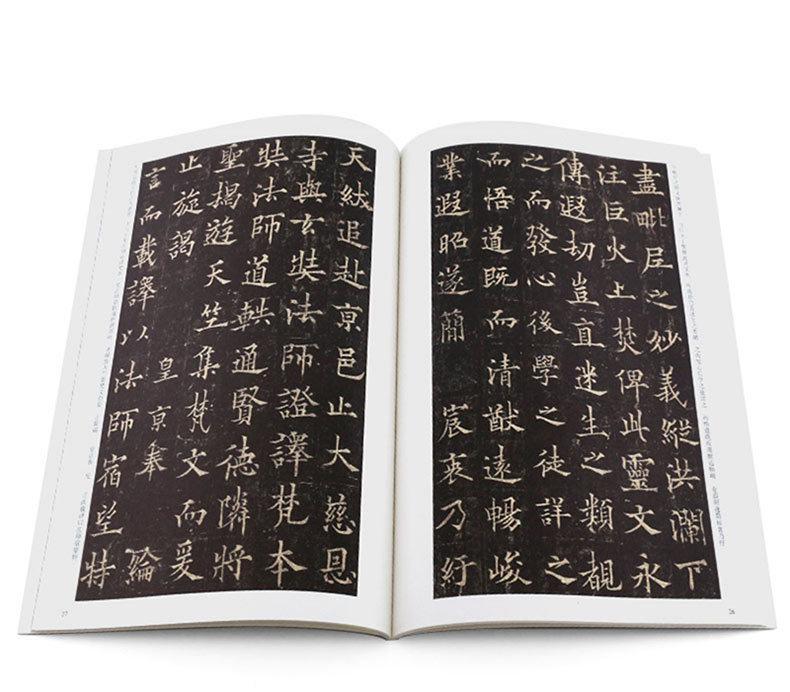 盡毗尼之妙義縱洪瀾下
注巨火上焚俾此靈文永
傳遐刧豈直迷生之類覩
之而發心後學之徒詳之
而悟道既而清猷遠暢峻
業遐昭遂簡 宸衷乃紆
26
天紱追赴亰邑止大慈恩
寺與玄奘法師證譯梵本
奘法師道軼通賢德隣將
聖揭遊天竺集梵文而爰
止旋謁 皇亰奉 綸
言而載譯以法師宿望特
27